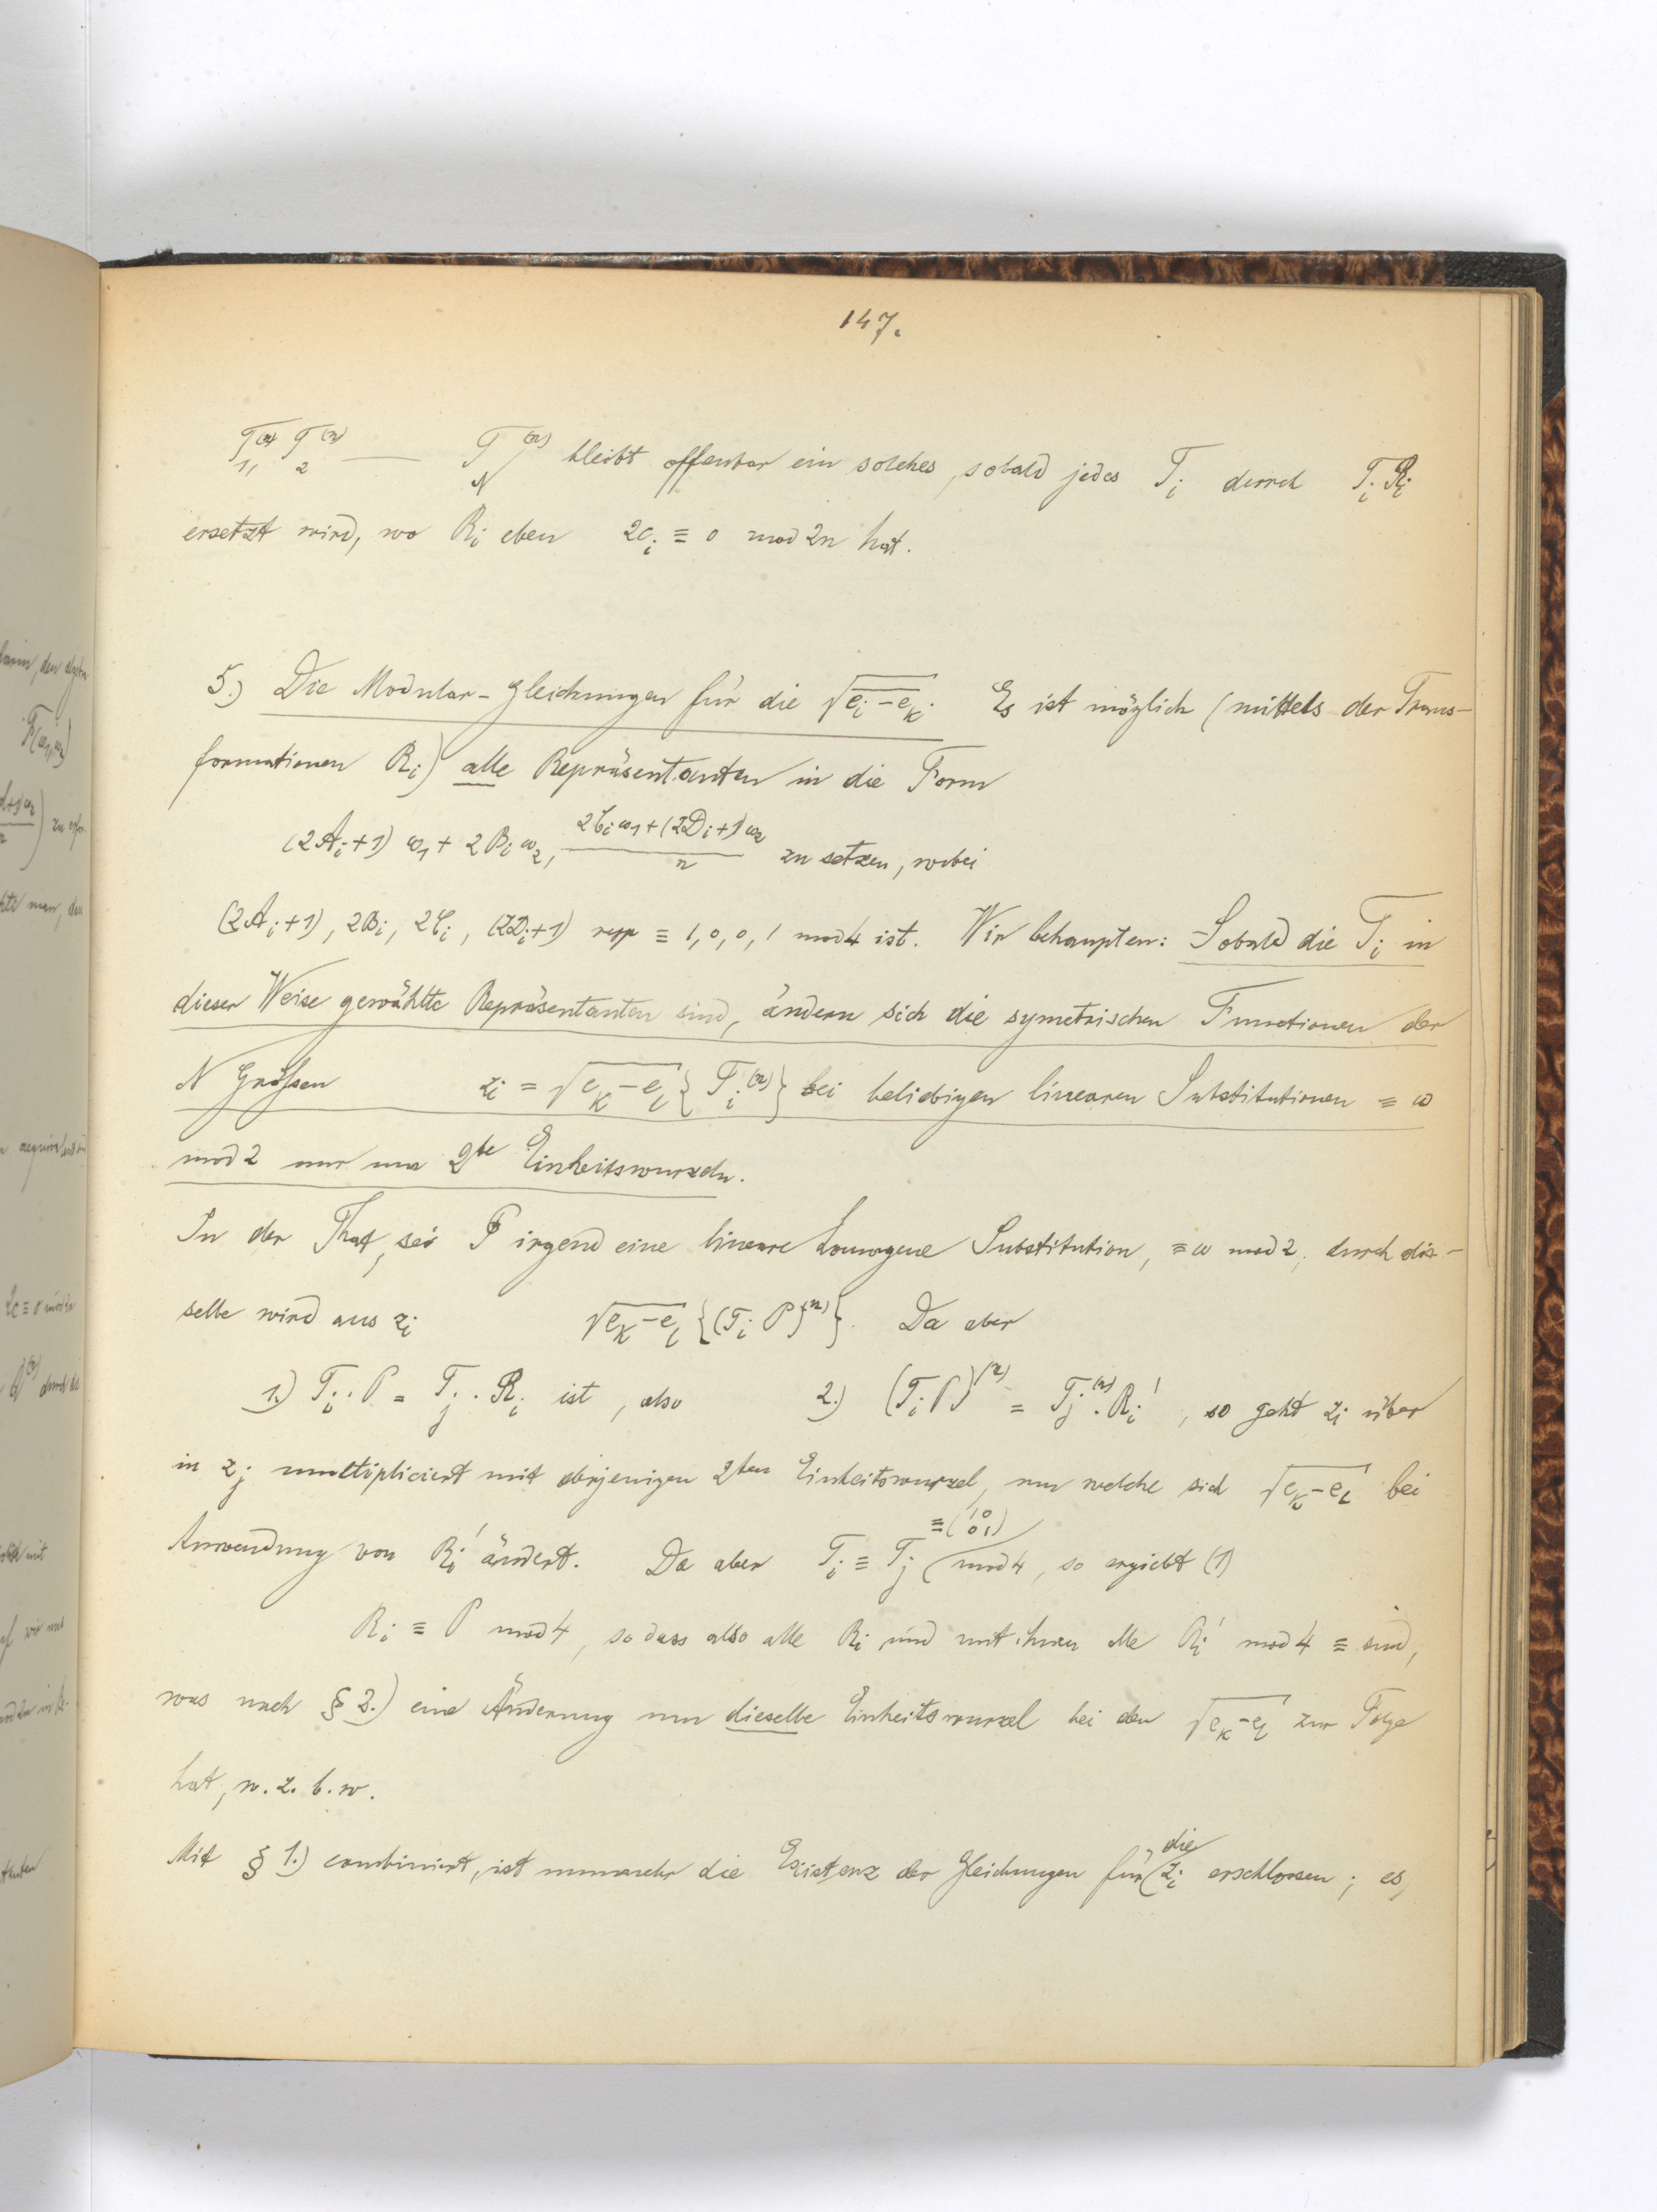 147.
T₁⁽ⁿ⁾, T₂⁽ⁿ⁾ — T_N⁽ⁿ⁾ bleibt offenbar ein solches, sobald jedes T_i durch T_i R_i
ersetzt wird, wo R_i eben 2c_i ≡ 0 mod 2n hat.
5.) Die Modular-Gleichungen für die √(e_i − e_k). Es ist möglich (mittels der Trans-
formationen R_i) alle Repräsentanten in die Form
(2A_i+1) ω₁ + 2B_i ω₂, (2C_i ω₁ + (2D_i+1) ω₂)/n zu setzen, wobei
(2A_i+1), 2B_i, 2C_i, (2D_i+1) resp ≡ 1, 0, 0, 1 mod 4 ist. Wir behaupten: Sobald die T_i in
dieser Weise gewählte Repräsentanten sind, ändern sich die symetrischen Functionen der
N Größen z_i = √(e_k − e_l) {T_i⁽ⁿ⁾} bei beliebigen linearen Substitutionen ≡ ω
mod 2 nur um 2te Einheitswurzeln.
In der That, sei P irgend eine lineare homogene Substitution, ≡ ω mod 2; durch die-
selbe wird aus z_i √(e_k − e_l) {(T_i P)⁽ⁿ⁾}. Da aber
1.) T_i . P = T_j . R_i ist, also 2.) (T_i P)⁽ⁿ⁾ = T_j⁽ⁿ⁾ . R_i′, so geht z_i über
in z_j multipliciert mit derjenigen 2ten Einheitswurzel, um welche sich √(e_k − e_l) bei
Anwendung von R_i′ ändert. Da aber T_i ≡ T_j ≡ (1 0 / 0 1) mod 4, so ergiebt (1)
R_i ≡ P mod 4, so dass also alle R_i und mit ihnen alle R_i′ mod 4 ≡ sind,
was nach § 2.) eine Änderung um dieselbe Einheitswurzel bei den √(e_k − e_l) zur Folge
hat, w. z. b. w.
Mit § 1.) combiniert, ist nunmehr die Existenz der Gleichungen für die z_i erschlossen; es,